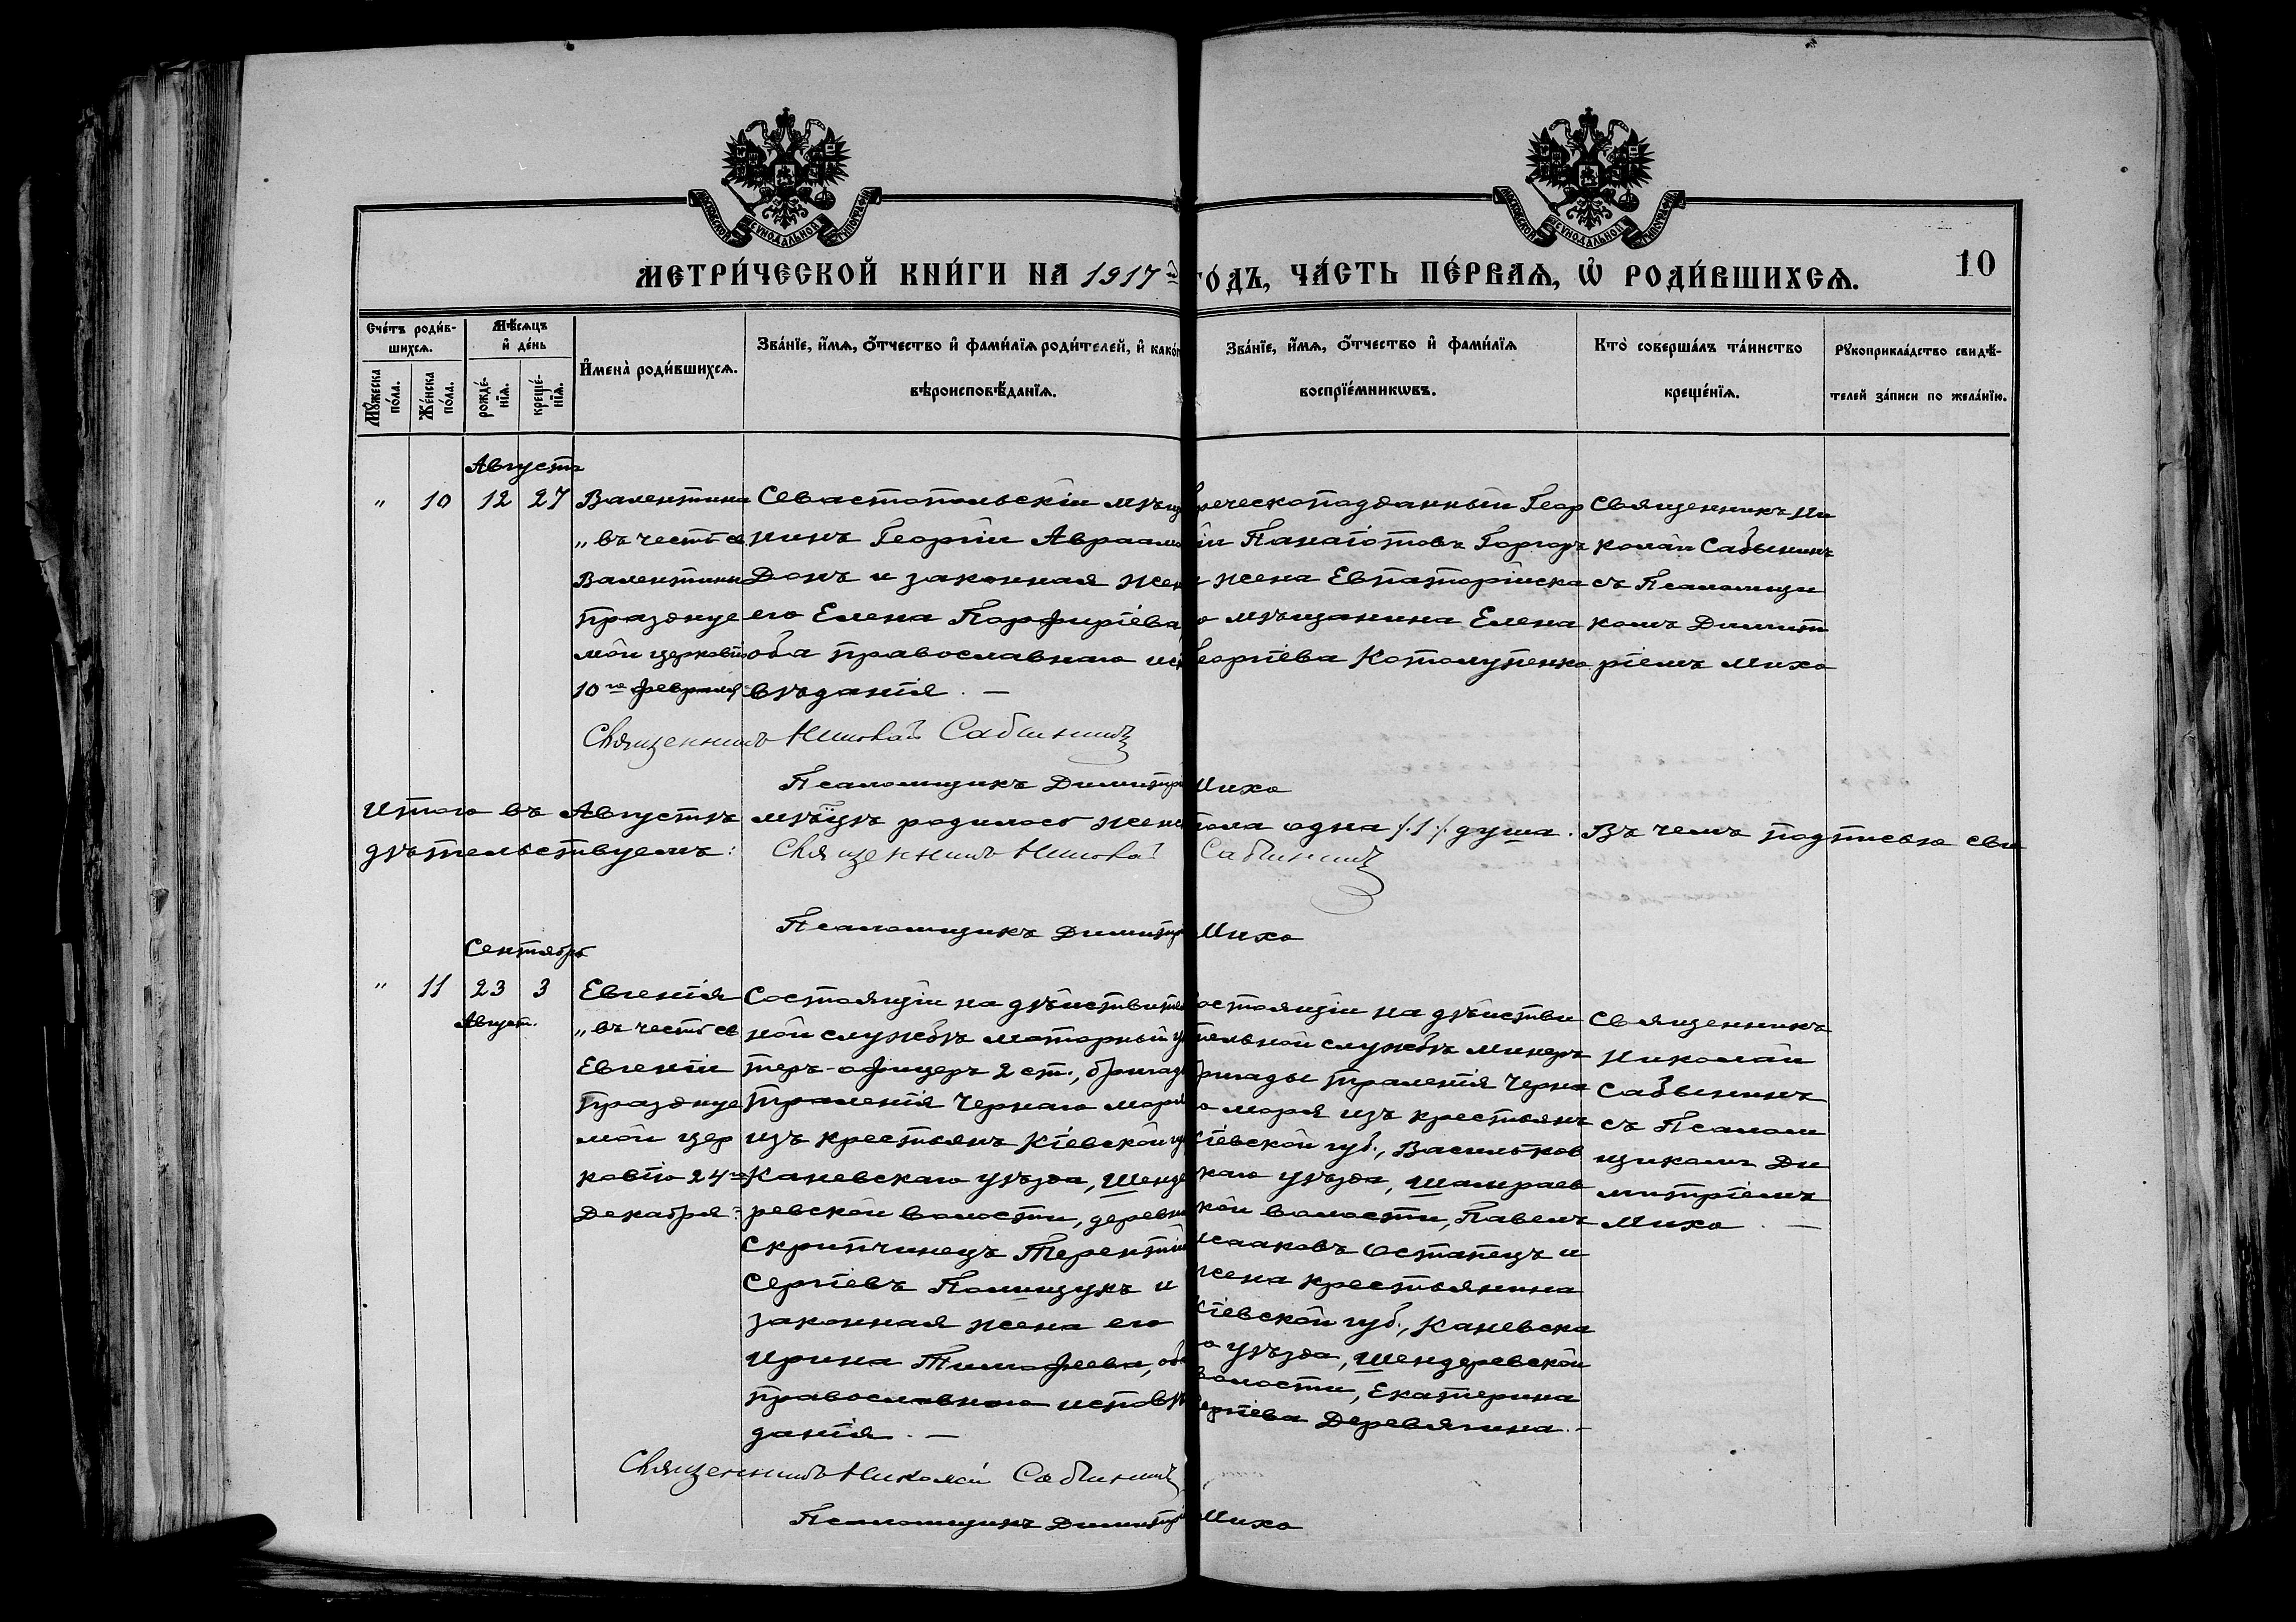 МЕТРИ́ЧЕСКОЙ КНИ́ГИ НА 1917й ГО́ДЪ, ЧА́СТЬ ПЕ́РВАѦ, Ѡ҆ РОДИ́ВШИХСѦ.
10
Сче́тъ роди́в-
шихсѧ.
Мꙋ́жеска по́ла.
Же́нска по́ла.
Мѣ́сѧцъ и҆ де́нь
рожде́нїѧ.
креще́нїѧ.
И҆мена̀ роди́вшихсѧ.
Зва́нїе, и҆́мѧ, ѻ҆́тчество и҆ фами́лїѧ роди́телей, и҆ како́г
вѣроисповѣ́данїѧ.
Зва́нїе, и҆́мѧ, ѻ҆́тчество и҆ фами́лїѧ
воспрїе́мникѡвъ.
Кто̀ соверша́лъ та́инство
креще́нїѧ.
Рꙋкоприкла́дство свидѣ́-
телей за́писи по жела́нїю.
Августъ
„ 10 12 27
Валентина
„въ честь св.
Валентины
празднуе
мой церковью
10го февраля
Севастопольскій мѣщ
нинъ Георгій Авраамо
Донъ и законная жен
его Елена Порфиріева,
оба православнаго исп
вѣданія. —
греческоподданный Геор
ій Панаіотовъ Горгоръ
и жена Евпаторійска
о мѣщанина Елена
Георгіева Котолупенко
Священникъ Ни
колай Сабынинъ
съ Псаломщи
комъ Димит
ріемъ Михо
Священникъ Николай Сабынинъ
Псаломщикъ Димитрі Михо
Итого въ Августѣ мѣсяцѣ родилось женс пола одна /.1./ душа. Въ чемъ подписью сви
дѣтельствуемъ: Священникъ Николай Сабынинъ
Псаломщикъ Димитрі Михо
Сентябрь
„ 11 23 3
Август.
Евгенія
„въ честь св
Евгеніи
празднуе
мой цер
ковью 24го
Декабря:
Состоящій на дѣйствител
ной службѣ моторный ун
теръ-офицеръ 2 ст., бригады
траленія Чернаго моря
изъ крестьянъ Кіевской гу
Каневскаго уѣзда, Шенде
ревской волости, деревни
Скрипчинецъ Терентій
Сергіевъ Полищукъ и
законная жена его
Ирина Тимофеева, оба
православнаго исповѣ
данія. —
Состоящій на дѣйстви
тельной службѣ минеръ
бригады траленія Черна
о моря изъ крестьянъ
Кіевской губ., Васильков
каго уѣзда, Шамраев
кой волости, Павелъ
Исааковъ Остапецъ и
жена крестьянина
Кіевской губ., Каневска
о уѣзда, Шендеревской
волости, Екатерина
Сергіева Деревягина. —
Священникъ
Николай
Сабынинъ
съ Псалом
щикомъ Ди
митріемъ
Михо. —
Священникъ Николай Сабынинъ
Псаломщикъ Димитрі Михо